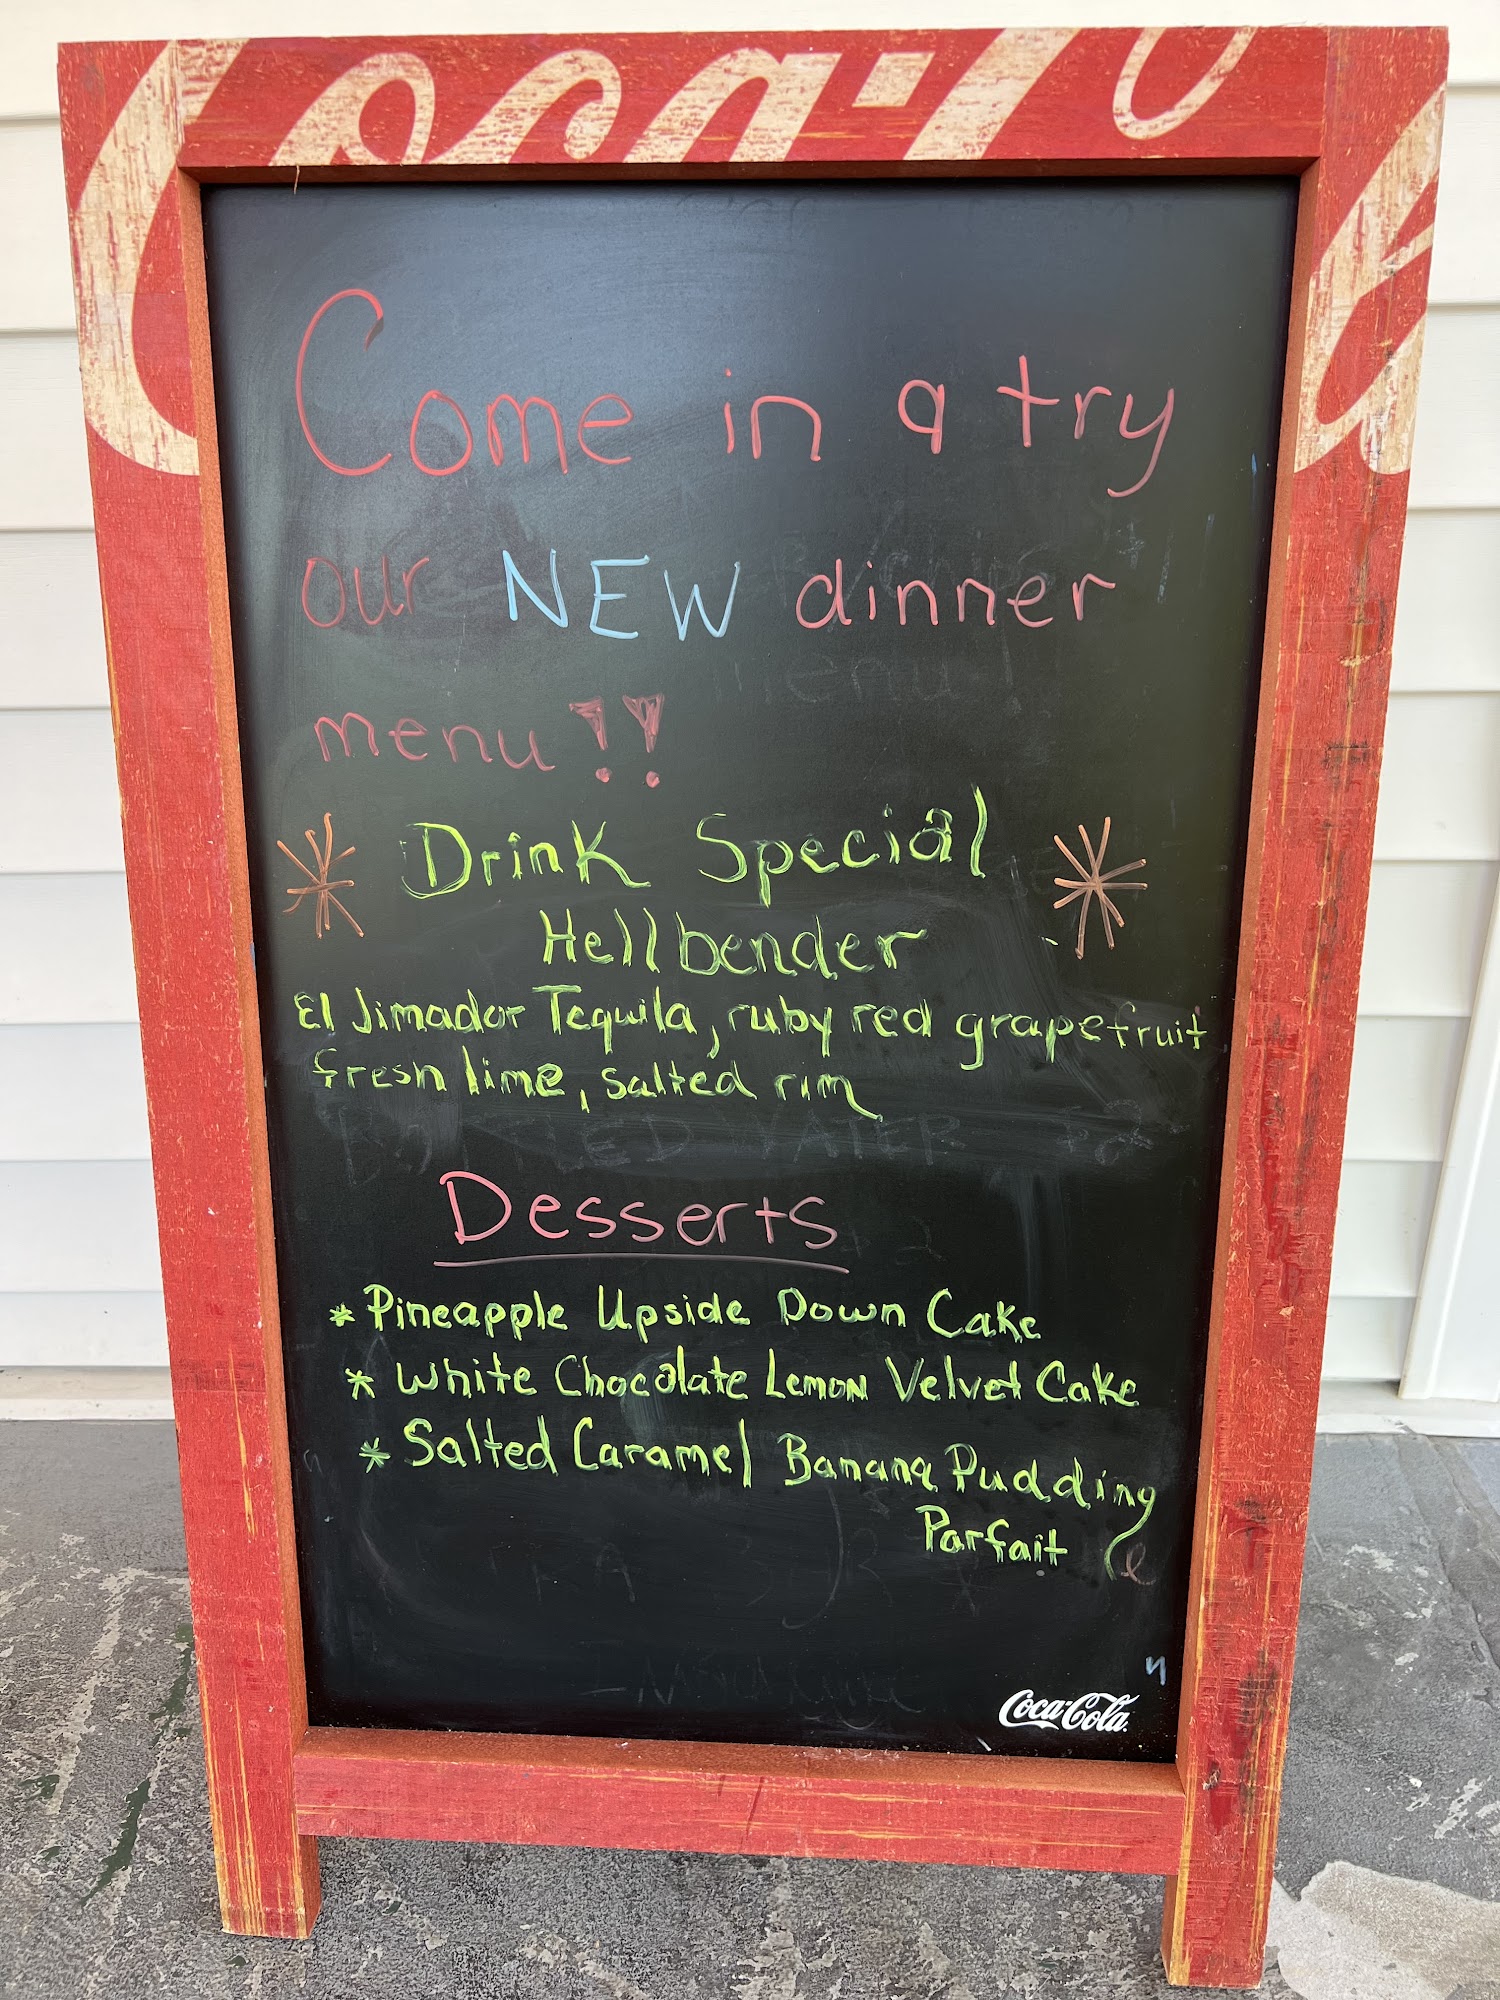 Coca-Co
Come in a try
our NEW dinner
menu!!
* Drink Special *
Hellbender
El Jimador Tequila, ruby red grapefruit
fresh lime, salted rim
BOTTLED WATER
Desserts
* Pineapple Upside Down Cake
* White Chocolate Lemon Velvet Cake
* Salted Caramel Banana Pudding
Parfait
Coca-Cola